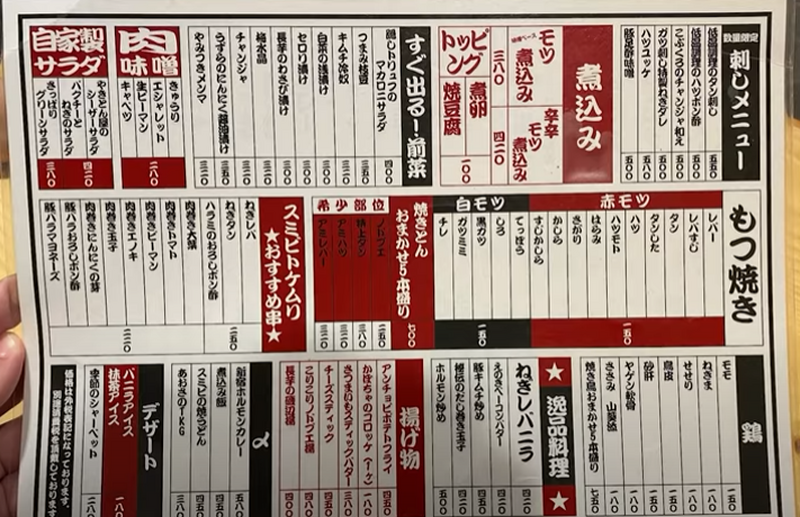 数量限定
刺しメニュー
低温調理のタン刺し 五五〇
低温調理のハツポン酢 五〇〇
こぶくろのチャンジャ和え 五〇〇
ガツ刺し特製ねぎダレ 五〇〇
ハツユッケ 五八〇
豚足酢味噌 五〇〇
煮込み
モツ煮込み 三八〇
辛辛モツ煮込み 四二〇
トッピング
煮卵
焼豆腐
一〇〇
すぐ出る!前菜
トリュフのマカロニサラダ 四〇〇
つまみ枝豆
キムチ冷奴
白菜の浅漬け 三〇〇
セロリ漬け 三〇〇
長芋のわさび漬け 三〇〇
梅水晶
チャンジャ
うずらのにんにく醤油漬け
やみつきメンマ 三二〇
肉味噌
きゅうり
エシャレット
生ピーマン
キャベツ
二八〇
自家製サラダ
やきとん屋のシーザーサラダ
パクチーとねぎのサラダ
四二〇
さっぱりグリーンサラダ 三八〇
もつ焼き
赤モツ
レバー
レバすじ
タン
タンした
ハツ
ハツモト
はらみ
さがり
かしら
すじかしら
一五〇
白モツ
てっぽう
しろ
黒ガツ
ガツミミ
チレ
一五〇
焼きとん
おまかせ5本盛り 七〇〇
希少部位
ノドブエ 二五〇
特上タン 三八〇
アミハツ 三二〇
アミレバー 三二〇
スミビトケムリ
★おすすめ串★
ねぎレバ
ねぎタン
ハラミのおろしポン酢
二五〇
肉巻き大葉
肉巻きトマト
肉巻きピーマン
肉巻きエノキ
肉巻き玉子
肉巻きにんにくの芽
豚バラおろしポン酢
豚バラマヨネーズ
二二〇
鶏
モモ 一五〇
ねぎま 一八〇
せせり 一八〇
鳥皮 一五〇
砂肝 一五〇
ヤゲン軟骨 一八〇
ささみ 山葵 一八〇
焼き鳥おまかせ5本盛り 七五〇
★逸品料理★
ねぎレバニラ
えのきベーコンバター
豚キムチ炒め
秘伝のだし巻き玉子
ホルモン炒め
揚げ物
アンチョビポテトフライ 四五〇
かぼちゃのコロッケ(1ヶ) 一八〇
さつまいもスティックバター 三八〇
チーズスティック
こりこりノドブエ揚
長芋の磯辺揚 四〇〇
〆
新宿ホルモンカレー 五八〇
煮込み飯 四五〇
スミビの焼うどん 四五〇
あおさのTKG 三八〇
デザート
バニラアイス
抹茶アイス
一八〇
季節のシャーベット 二八〇
価格は外税表記になっております。
別途消費税を頂戴しております